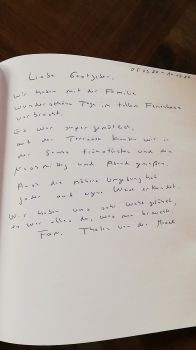 Liebe Gastgeber,
wir haben mit der Familie
wunderschöne Tage im tollen Ferienhaus
verbracht.
Es war super gemütlich,
auf der Terrasse konnten wir in
der Sonne frühstücken und den
Nachmittag und Abend genießen.
Auch die nähere Umgebung hat
jeder auf eigene Weise erkundet.
Wir haben uns sehr wohl gefühlt,
es war alles da, was man braucht.
Fam. von der